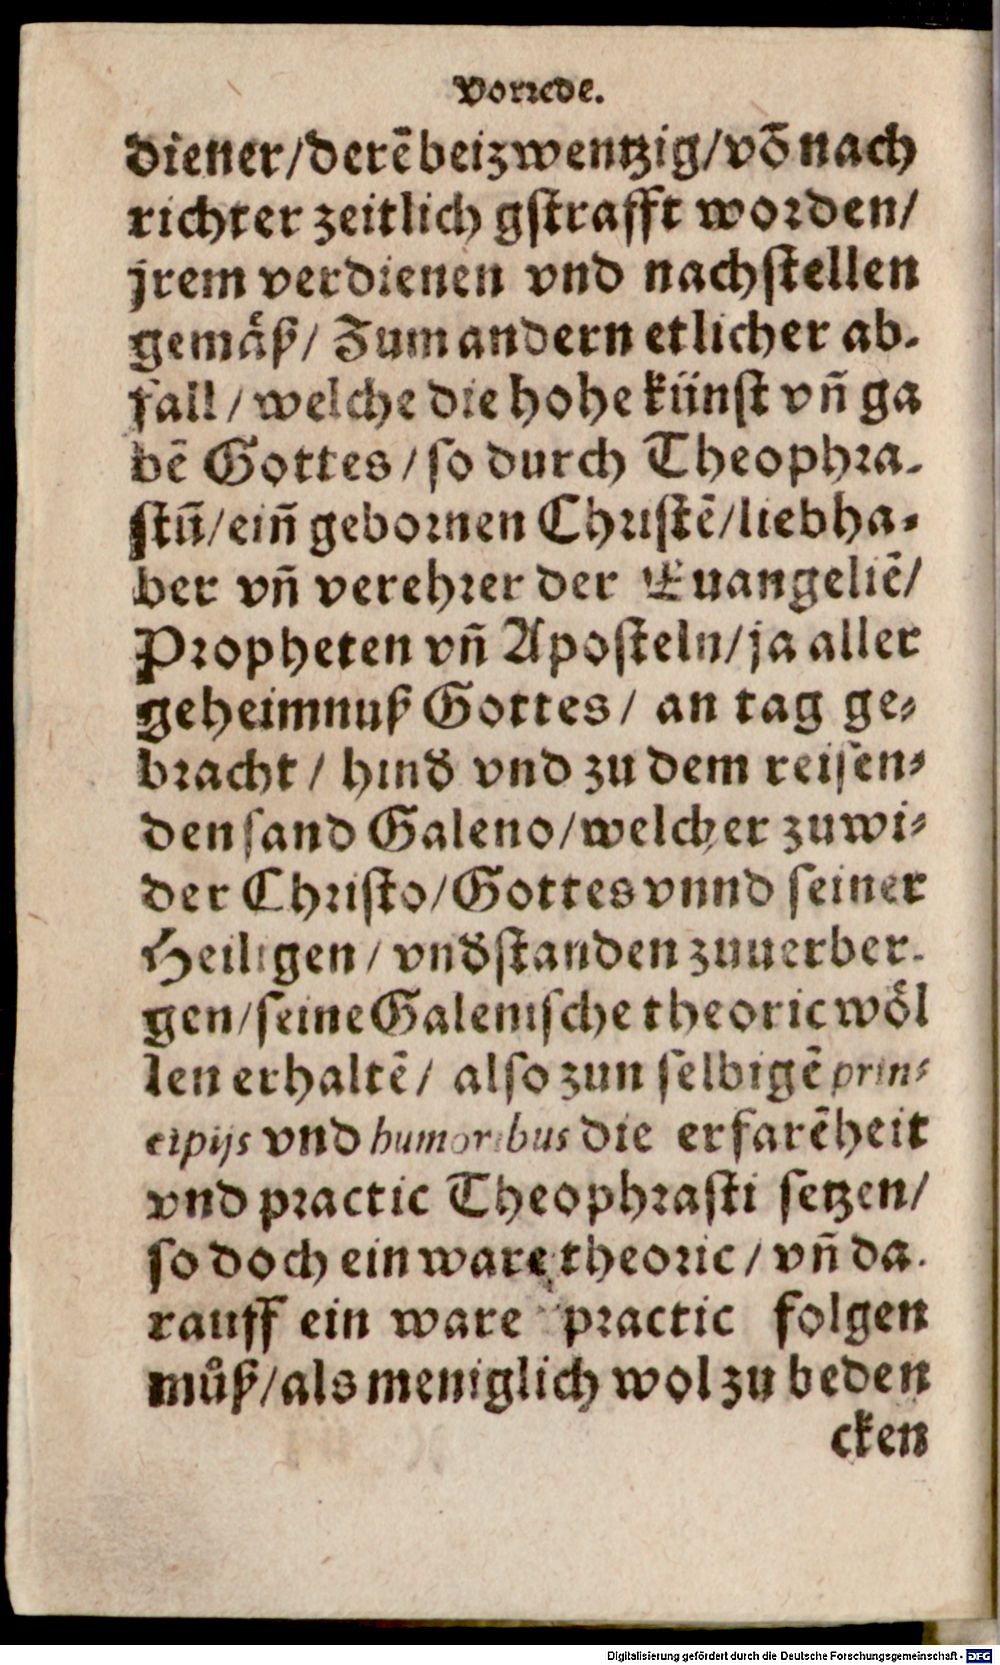 Vorrede.
diener/derē beizwentzig/vō nach
richter zeitlich gstrafft worden/
jrem verdienen vnd nachstellen
gemäß/ Zum andern etlicher ab-
fall/ welche die hohe künst vn̄ ga
bē Gottes/ so durch Theophra-
stū/ ein̄ gebornen Christē/liebha-
ber vn̄ verehrer der Euangeliē/
Propheten vn̄ Aposteln/ja aller
geheimnuß Gottes/ an tag ge-
bracht/ hind' vnd zu dem reisen-
den sand Galeno/welcher zuwi-
der Christo/Gottes vnnd seiner
Heiligen/ vnd'standen zuuerber-
gen/seine Galenische theoric wöl
len erhaltē/ also zun selbigē prin-
cipijs vnd humoribus die erfarēheit
vnd practic Theophrasti setzen/
so doch ein ware theoric/ vn̄ da-
rauff ein ware practic folgen
můß/als meniglich wol zu beden
cken
Digitalisierung gefördert durch die Deutsche Forschungsgemeinschaft - DFG